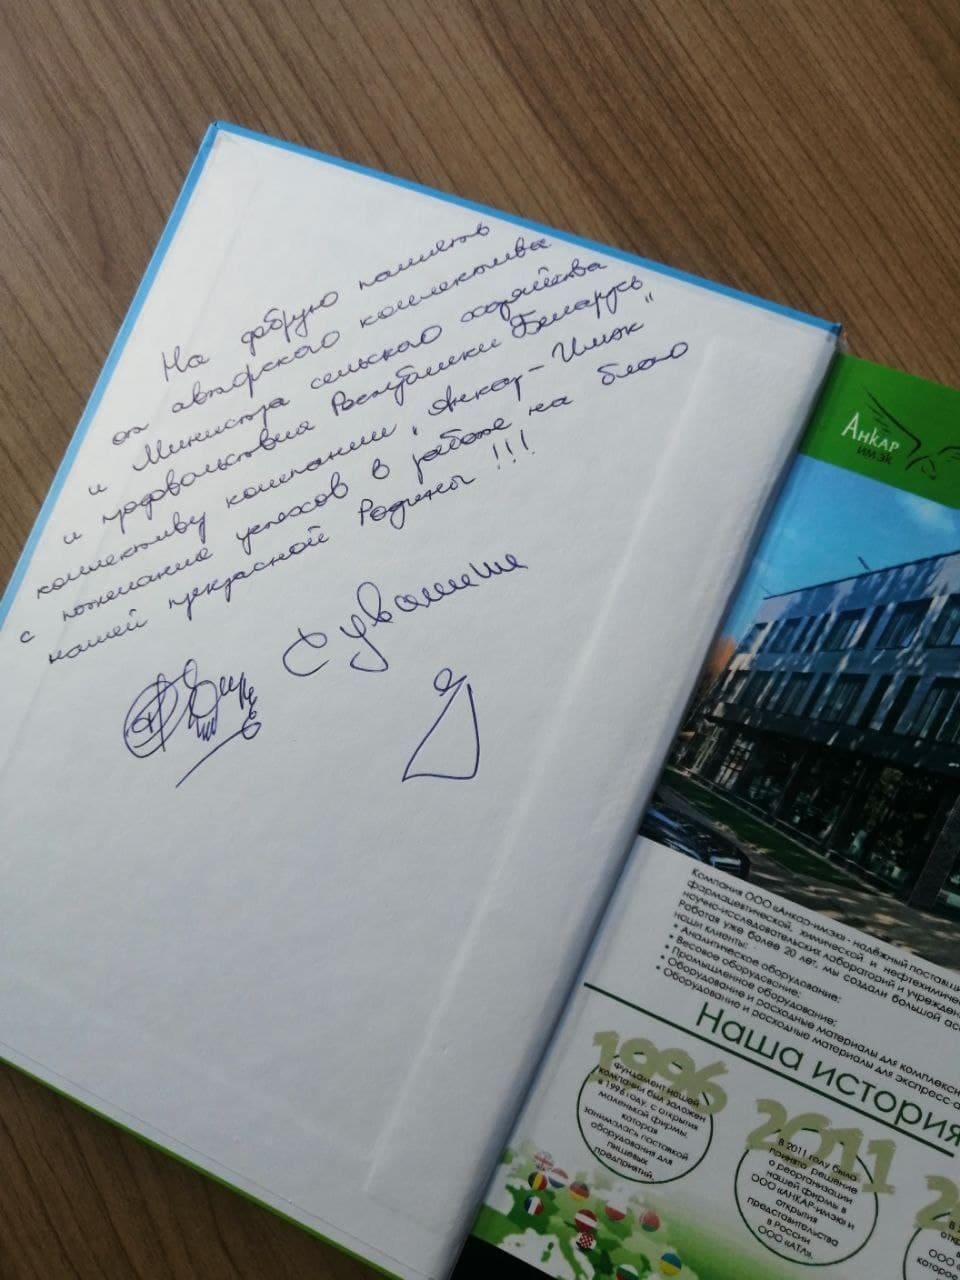 На добрую память
от авторского коллектива
и Министра сельского хозяйства
и продовольствия Республики Беларусь
коллективу компании „Анкар-Имэк"
с пожелание успехов в работе на благо
нашей прекрасной Родины !!!
С уважением
АНКАР
ИМЭК
Компания ООО «Анкар-имэк» - надёжный поставщик
фармацевтической, химической и нефтехимичес
научно-исследовательских лабораторий и учрежден
Работая уже более 20 лет, мы создали большой ас
наши клиенты:
• Аналитическое оборудование;
• Весовое оборудование;
• Промышленное оборудование;
• Оборудование и расходные материалы для комплексн
• Оборудование и расходные материалы для экспресс-а
Наша история
1996
Фундамент нашей
компании был заложен
в 1996 году, с открытия
маленькой фирмы,
которая
занималась поставкой
оборудования для
пищевых
предприятий.
2011
В 2011 году было
принято решение
о реорганизации
нашей фирмы в
ООО «АНКАР-имэк» и
открытия
представительства
в России
ООО «АТЛ».